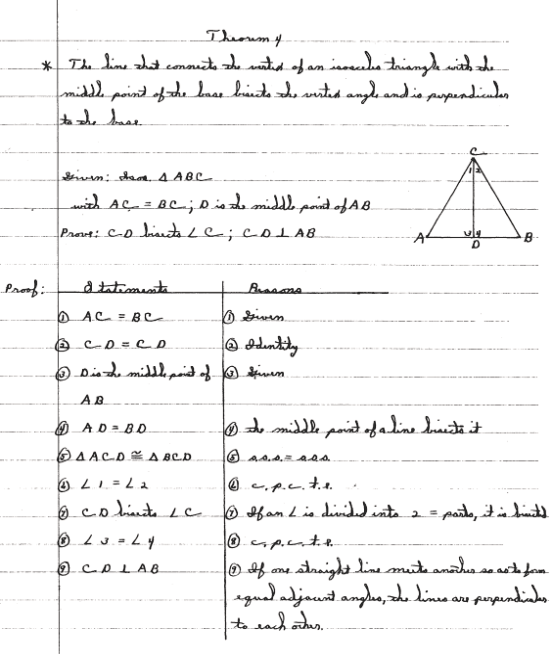 Theorem 4
* The line that connects the vertex of an isosceles triangle with the
middle point of the base bisects the vertex angle and is perpendicular
to the base.
C
1 2
Given: Isos. △ ABC
with AC = BC; D is the middle point of AB
Prove: CD bisects ∠ C; CD ⊥ AB
A 3 4 B
D
Proof: Statements Reasons
① AC = BC ① Given
② CD = CD ② Identity
③ D is the middle point of ③ Given
AB
④ AD = BD ④ the middle point of a line bisects it
⑤ △ ACD ≅ △ BCD ⑤ s.s.s. = s.s.s.
⑥ ∠ 1 = ∠ 2 ⑥ c.p.c.t.e.
⑦ CD bisects ∠ C ⑦ If an ∠ is divided into 2 = parts, it is bisected
⑧ ∠ 3 = ∠ 4 ⑧ c.p.c.t.e.
⑨ CD ⊥ AB ⑨ If one straight line meets another so as to form
equal adjacent angles, the lines are perpendicular
to each other.